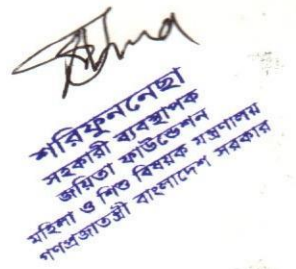 শরিফুননেছা
সহকারী ব্যবস্থাপক
জয়িতা ফাউন্ডেশন
মহিলা ও শিশু বিষয়ক মন্ত্রণালয়
গণপ্রজাতন্ত্রী বাংলাদেশ সরকার